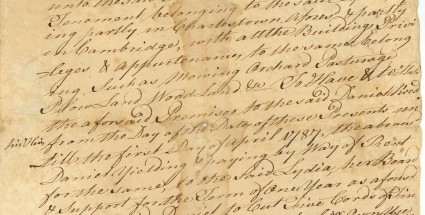 unto the said
Tenement belonging to the said
ing partly in Charlestown afores.d & partly
in Cambridge, with all the Buildings Privi
=leges & Appurtenances, to the same belong
ing. Such as Mowing Orchard Pasturage
Plow Land Wood Land &c To Have & to Hold
the aforesaid Premises to the said Daniel Reed
from the Day of the Date of these Presents un
till the first Day of April 1787, the above
Daniel Yielding & paying by Way of Rent
for the same, to the said Lydia, her Board
& Support for the Term of One Year as afores
to Cut five Cords of